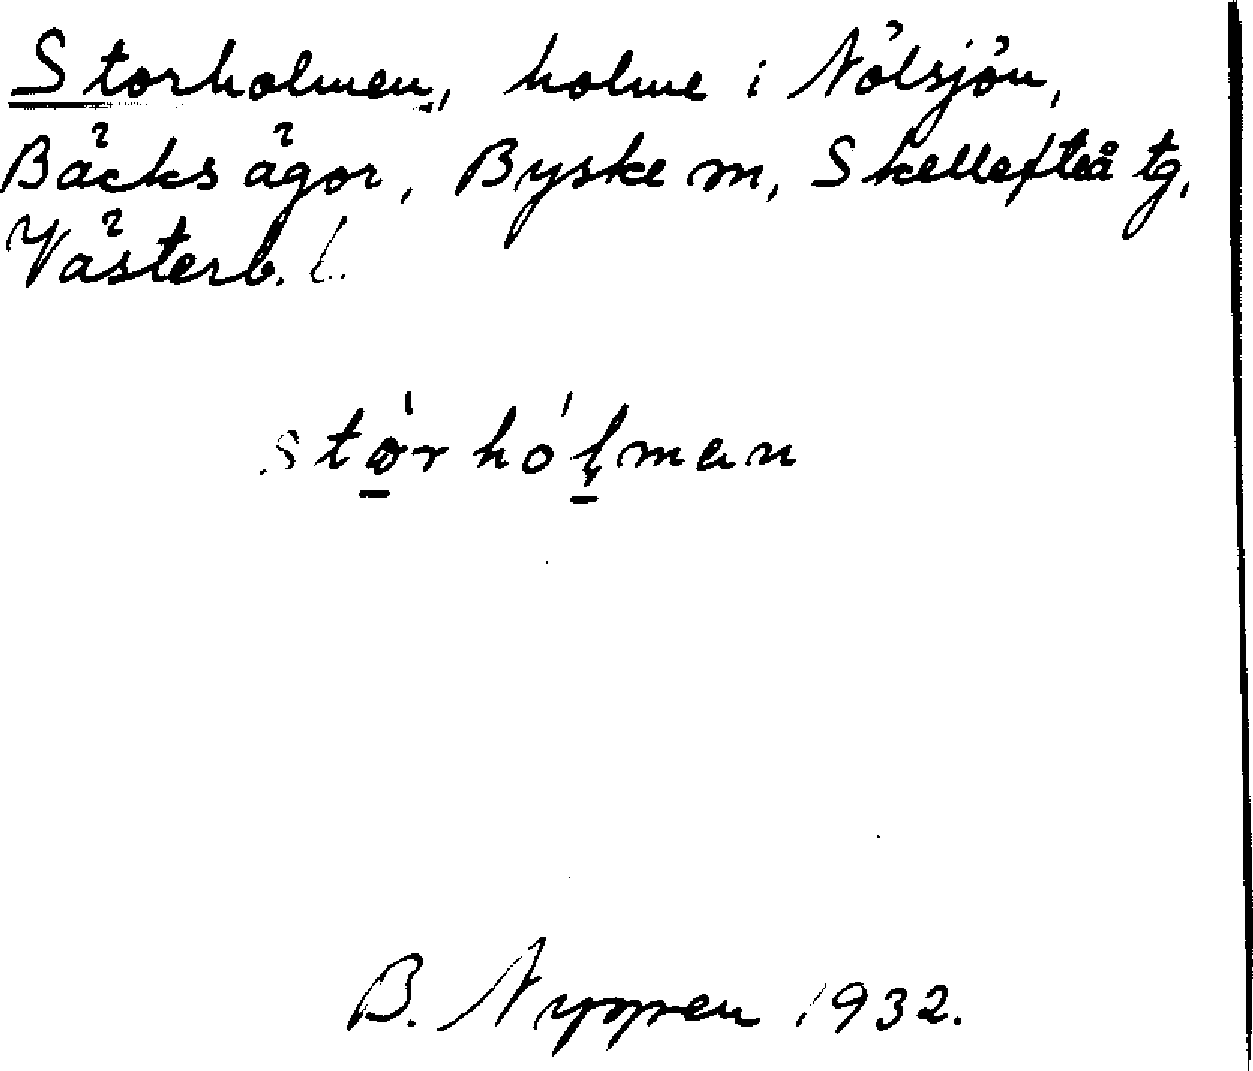 Storholmen, holme i Nölsjön,
Bäcks ägor, Byske sn, Skellefteå tg,
Västerb. l.
stórhólman
B. Nyppen 1932.